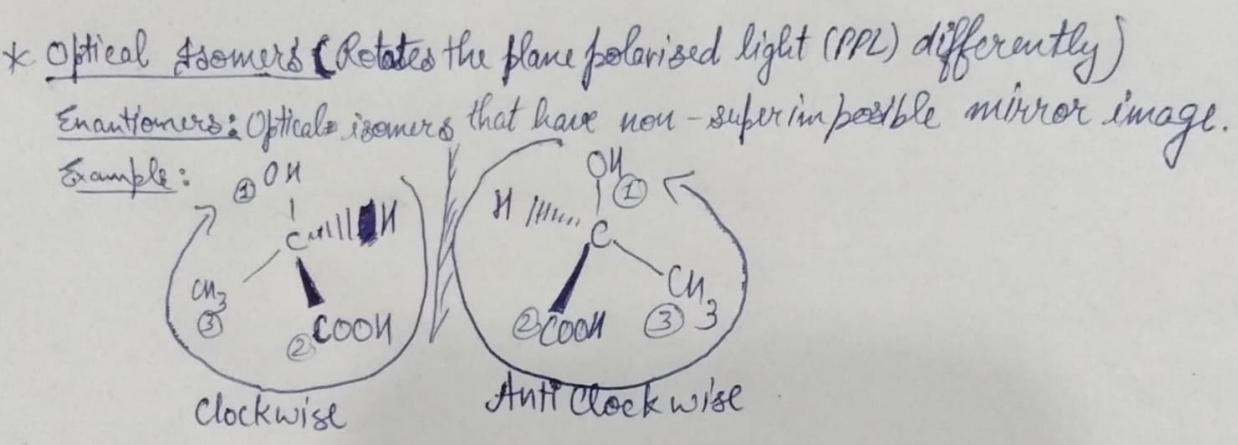 * Optical Isomers (Rotates the plane polarised light (PPL) differently)
Enantiomers: Optical isomers that have non-superimposible mirror image.
Example:
① OH
C H
CH3
③
② COOH
Clockwise
OH
①
H
C
CH3
② COOH ③
Anti Clockwise